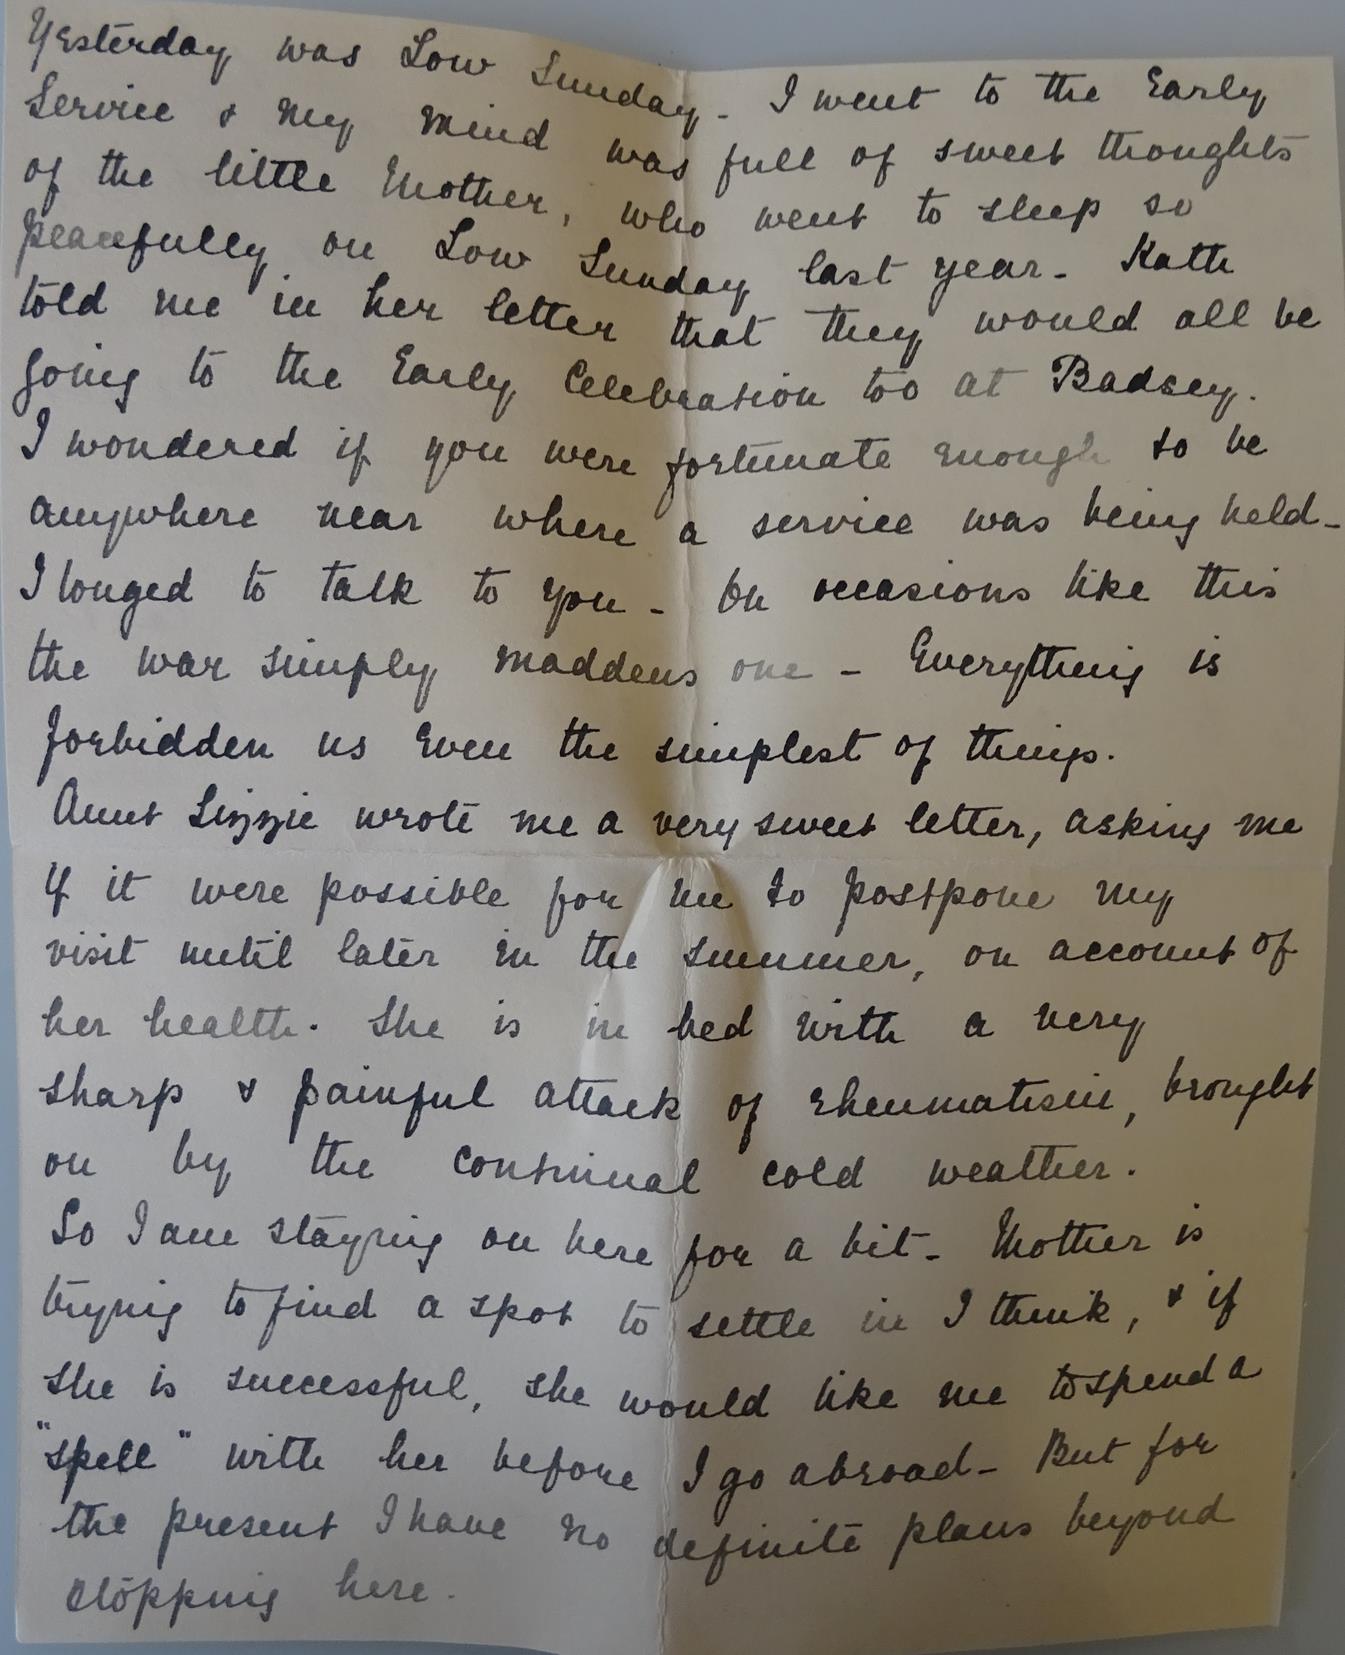 Yesterday was Low Sunday - I went to the Early
Service & my mind was full of sweet thoughts
of the little Mother, who went to sleep so
peacefully on Low Sunday last year - Kath
told me in her letter that they would all be
going to the Early Celebration too at Badsey.
I wondered if you were fortunate enough to be
anywhere near where a service was being held -
I longed to talk to you - On occasions like this
the war simply maddens one - Everything is
forbidden us even the simplest of things.
Aunt Lizzie wrote me a very sweet letter, asking me
if it were possible for me to postpone my
visit until later in the summer, on account of
her health. She is in bed with a very
sharp & painful attack of rheumatism, brought
on by the continual cold weather.
So I am staying on here for a bit - Mother is
trying to find a spot to settle in I think, & if
she is successful, she would like me to spend a
"spell" with her before I go abroad - But for
the present I have no definite plans beyond
stopping here.